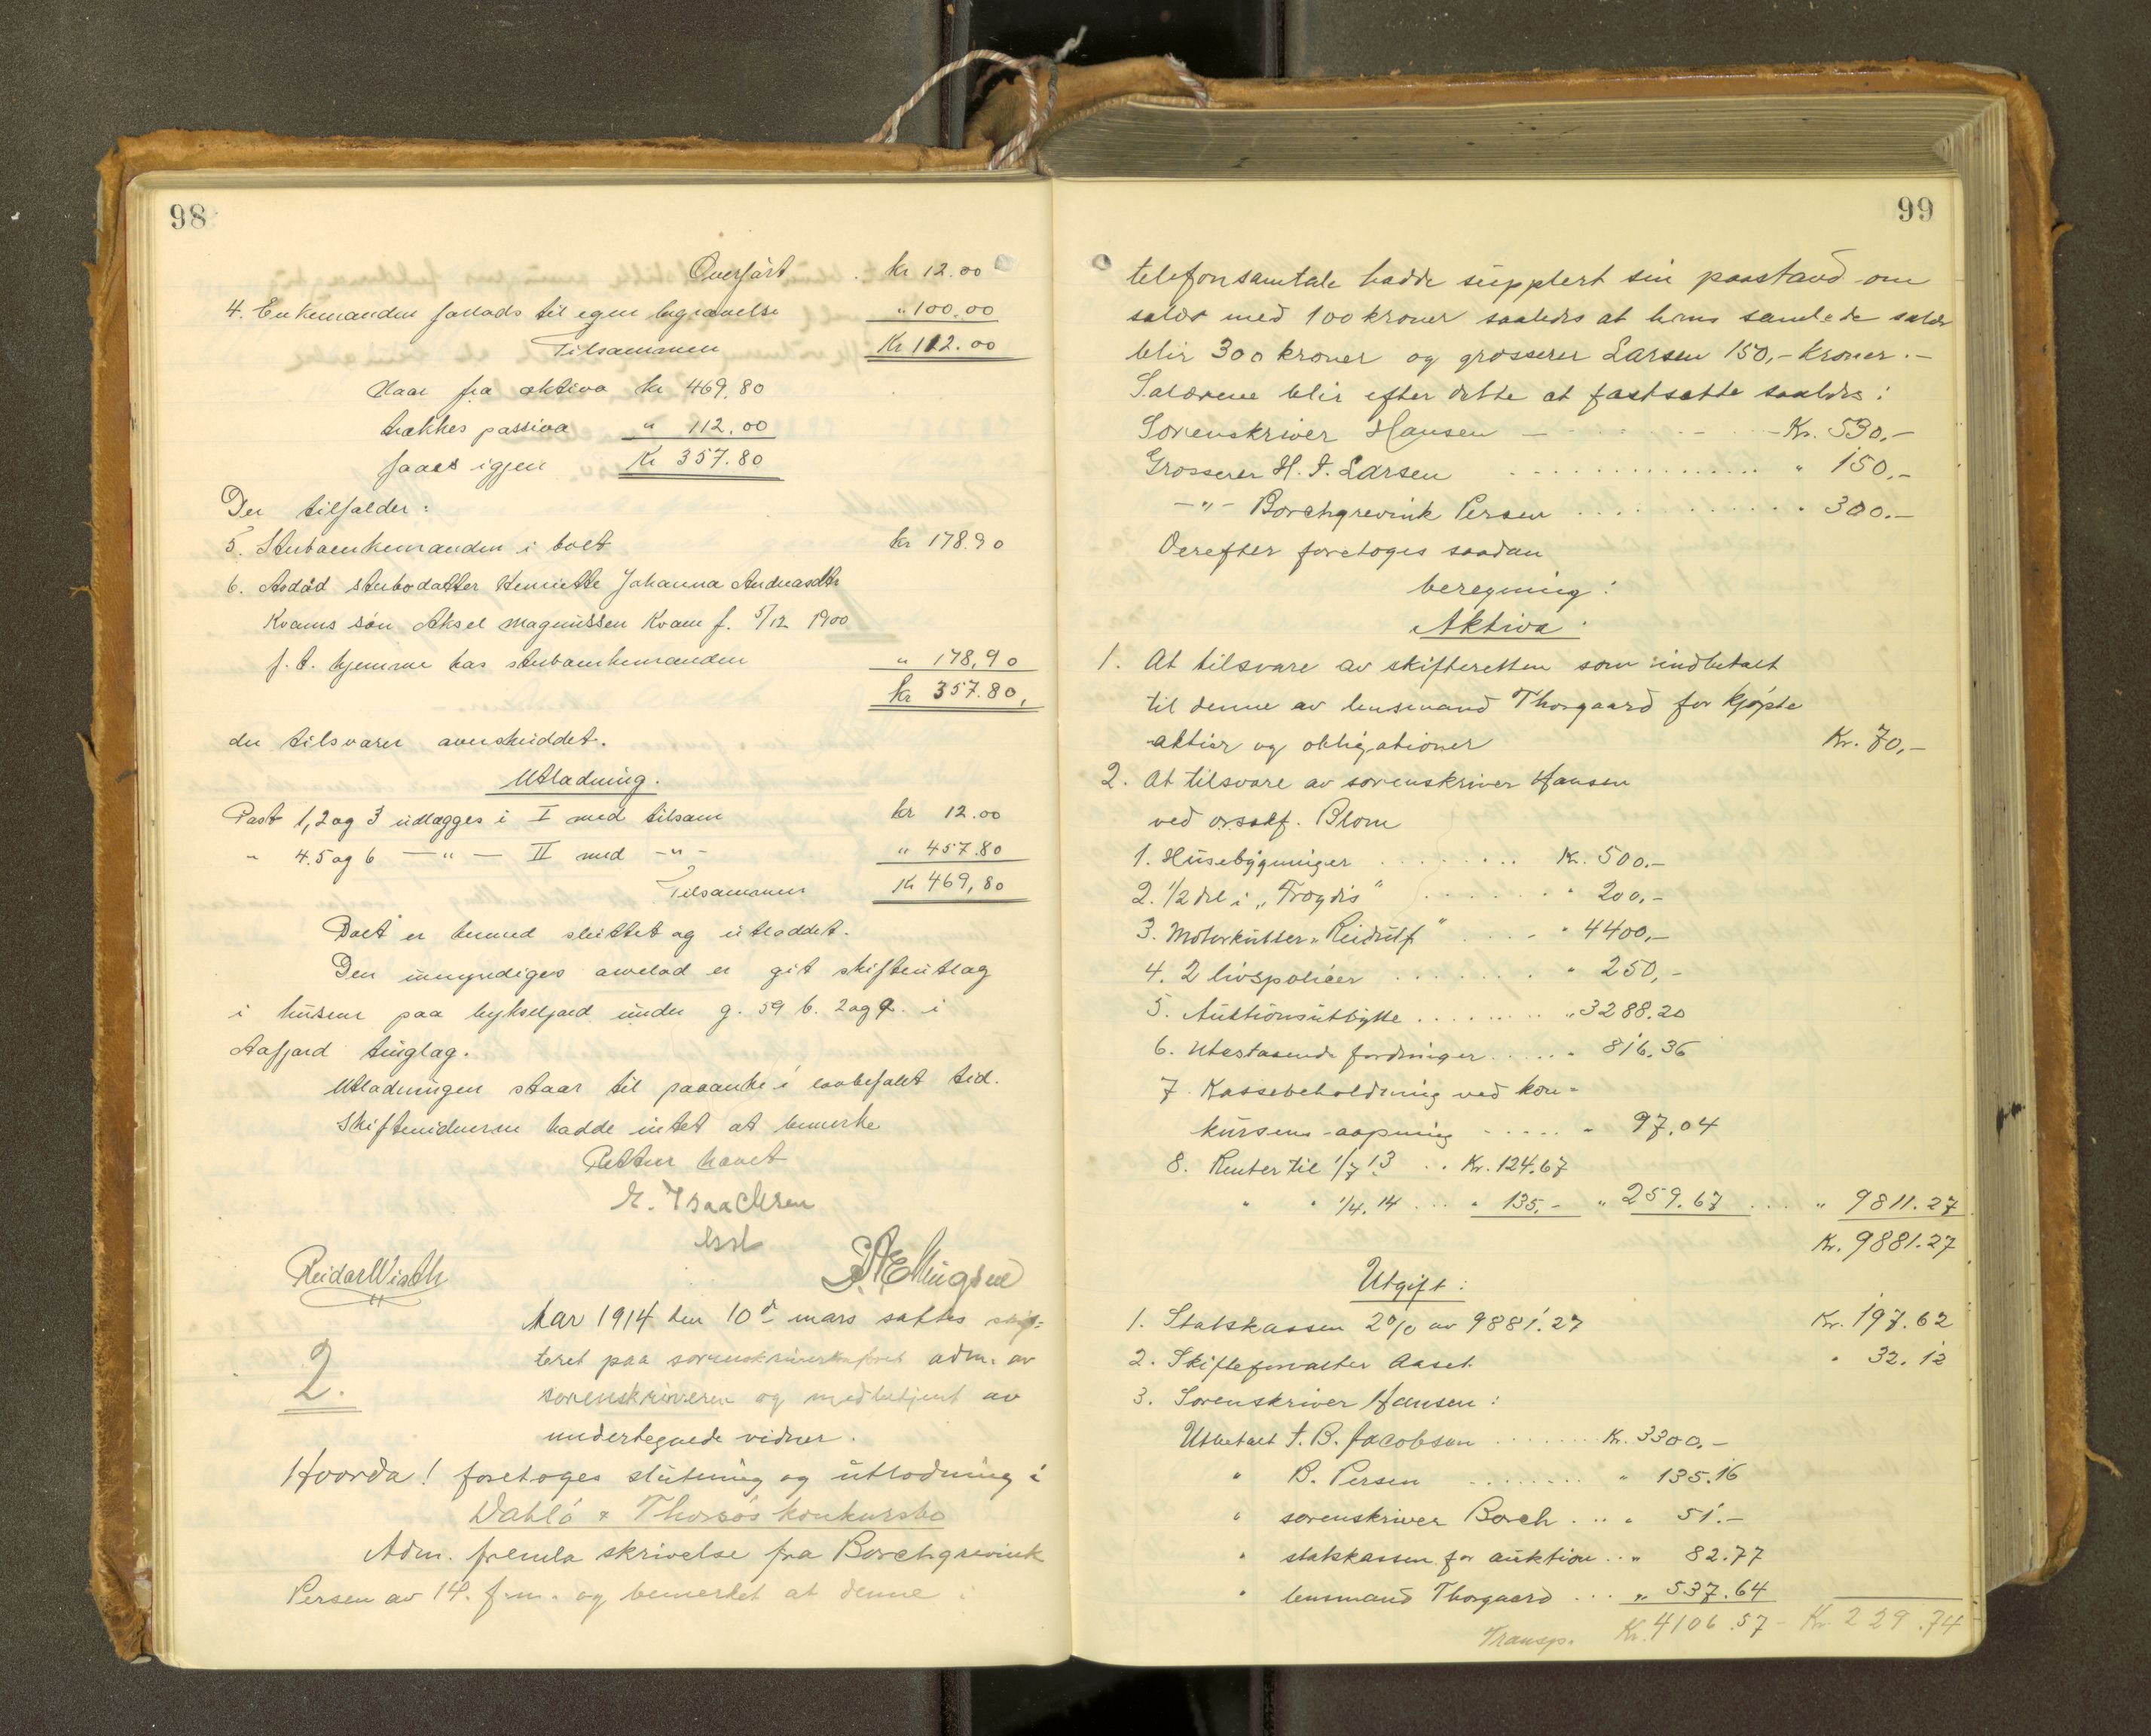 98
Overført . kr 12.00
4. Enkemanden forlods til egen begravelse " 100.00
Tilsammen Kr 112.00
Naar fra aktiva kr 469.80
trækkes passiva " 112.00
faaes igjen Kr 357.80
Der tilfalder:
5. Stervboenkemanden i boet kr 178.90
6. Avdød stervbodatter Henriette Johanna Andreasdtr
Kvams søn Aksel Magnussen Kvam f. 5/12 1900
f. t. hjemme hos stervboenkemanden " 178,90
kr 357.80,
der tilsvarer overskuddet.
Utlodning.
Post 1, 2 og 3 utlægges i I med tilsam kr 12.00
" 4. 5 og 6 — " — II med - " - " 457.80
Tilsammen Kr 469,80
Boet er hermed sluttet og utloddet.
Den umyndiges arvelod er git skifteutlæg
i husene paa bykseljord under g. 59 b. 2 og 9. i
Aafjord tinglag.
Utlodningen staar til paaanke i lovbefalet tid.
Skiftevidnerne hadde intet at bemerke
Retten hævet
E. Isaachsen
Reidar Wisth
P. A. Ellingsen
2.
Aar 1914 den 10de mars sattes skif-
teret paa sorenskriverkontoret adm. av
sorenskriveren og medbetjent av
undertegnede vidner.
Hvorda! foretoges slutning og utlodning i
Dahlø & Thorsøs konkursbo
Adm. fremla skrivelse fra Borchgrevink
Persen av 14. f. m. og bemerket at denne i
99
telefonsamtale hadde supplert sin paastand om
salær med 100 kroner saaledes at hans samlede salær
blir 300 kroner og grosserer Larsen 150,- kroner.-
Salærene blir efter dette at fastsætte saaledes:
Sorenskriver Hansen - Kr. 530,-
Grosserer H. I. Larsen " 150,-
- " - Borchgrevink Persen 300.-
Derefter foretoges saadan
beregning:
Aktiva.
1. At tilsvare av skifteretten som indbetalt
til denne av lensmand Thorgaard for kjøpte
aktier og obligationer Kr. 70,-
2. At tilsvare av sorenskriver Hansen
ved orsakf. Blom
1. Husebygninger Kr. 500.-
2. 1/2 del i "Frogdis" " 200,-
3. Motorkutter "Reidulf" " 4400,-
4. 2 livspolicer " 250,-
5. Auktionsutbytte " 3288.20
6. Utestaaende fordringer " 816.36
7. Kassebeholdning ved kon-
kursens aapning " 97.04
8. Renter til 1/7 13 .. Kr. 124.67
" " 1/4. 14 ... " 135,- " 259.67 ... " 9811.27
Kr. 9881.27
Utgift:
1. Statskassen 2 % av 9881.27 Kr. 197.62
2. Skifteforvalter Aaset " 32.12
3. Sorenskriver Hansen:
Utbetalt t. B. Jacobsen Kr. 3300,-
" B. Persen " 135.16
" sorenskriver Borch ... " 51.-
" statskassen for auktion .. " 82.77
" lensmand Thorgaard ... " 537.64
Transp. Kr. 4106.57 - Kr 229.74